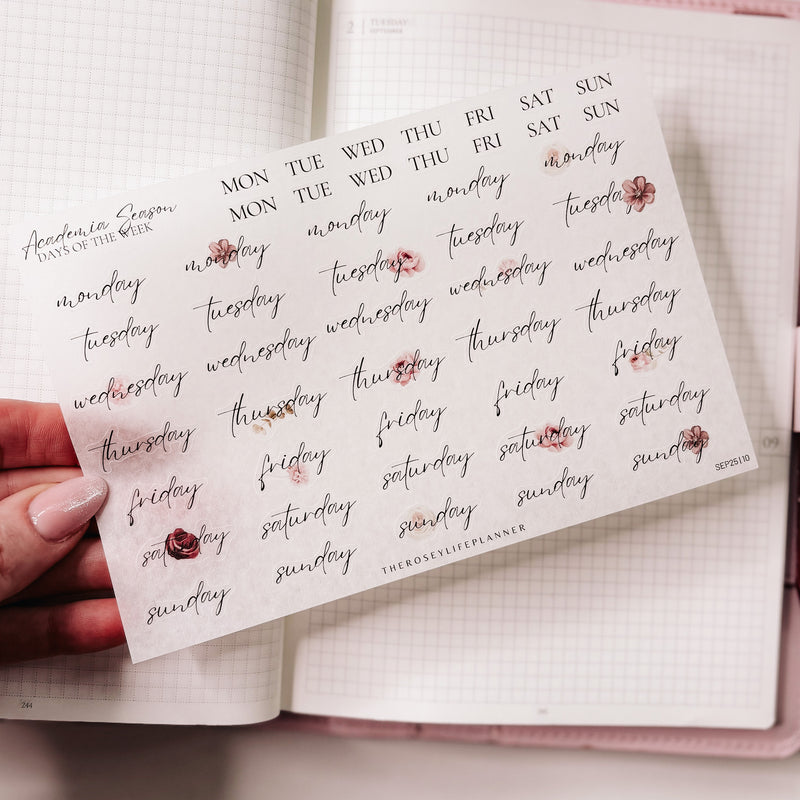 2 | TUESDAY
SEPTEMBER
MON TUE WED THU FRI SAT SUN
MON TUE WED THU FRI SAT SUN
Academia Season
DAYS OF THE WEEK
monday monday monday monday monday
tuesday tuesday tuesday tuesday tuesday
wednesday wednesday wednesday wednesday wednesday
thursday thursday thursday thursday thursday
friday friday friday friday friday
saturday saturday saturday saturday saturday
sunday sunday sunday sunday sunday
SEP25|10
THEROSEYLIFEPLANNER
09
244